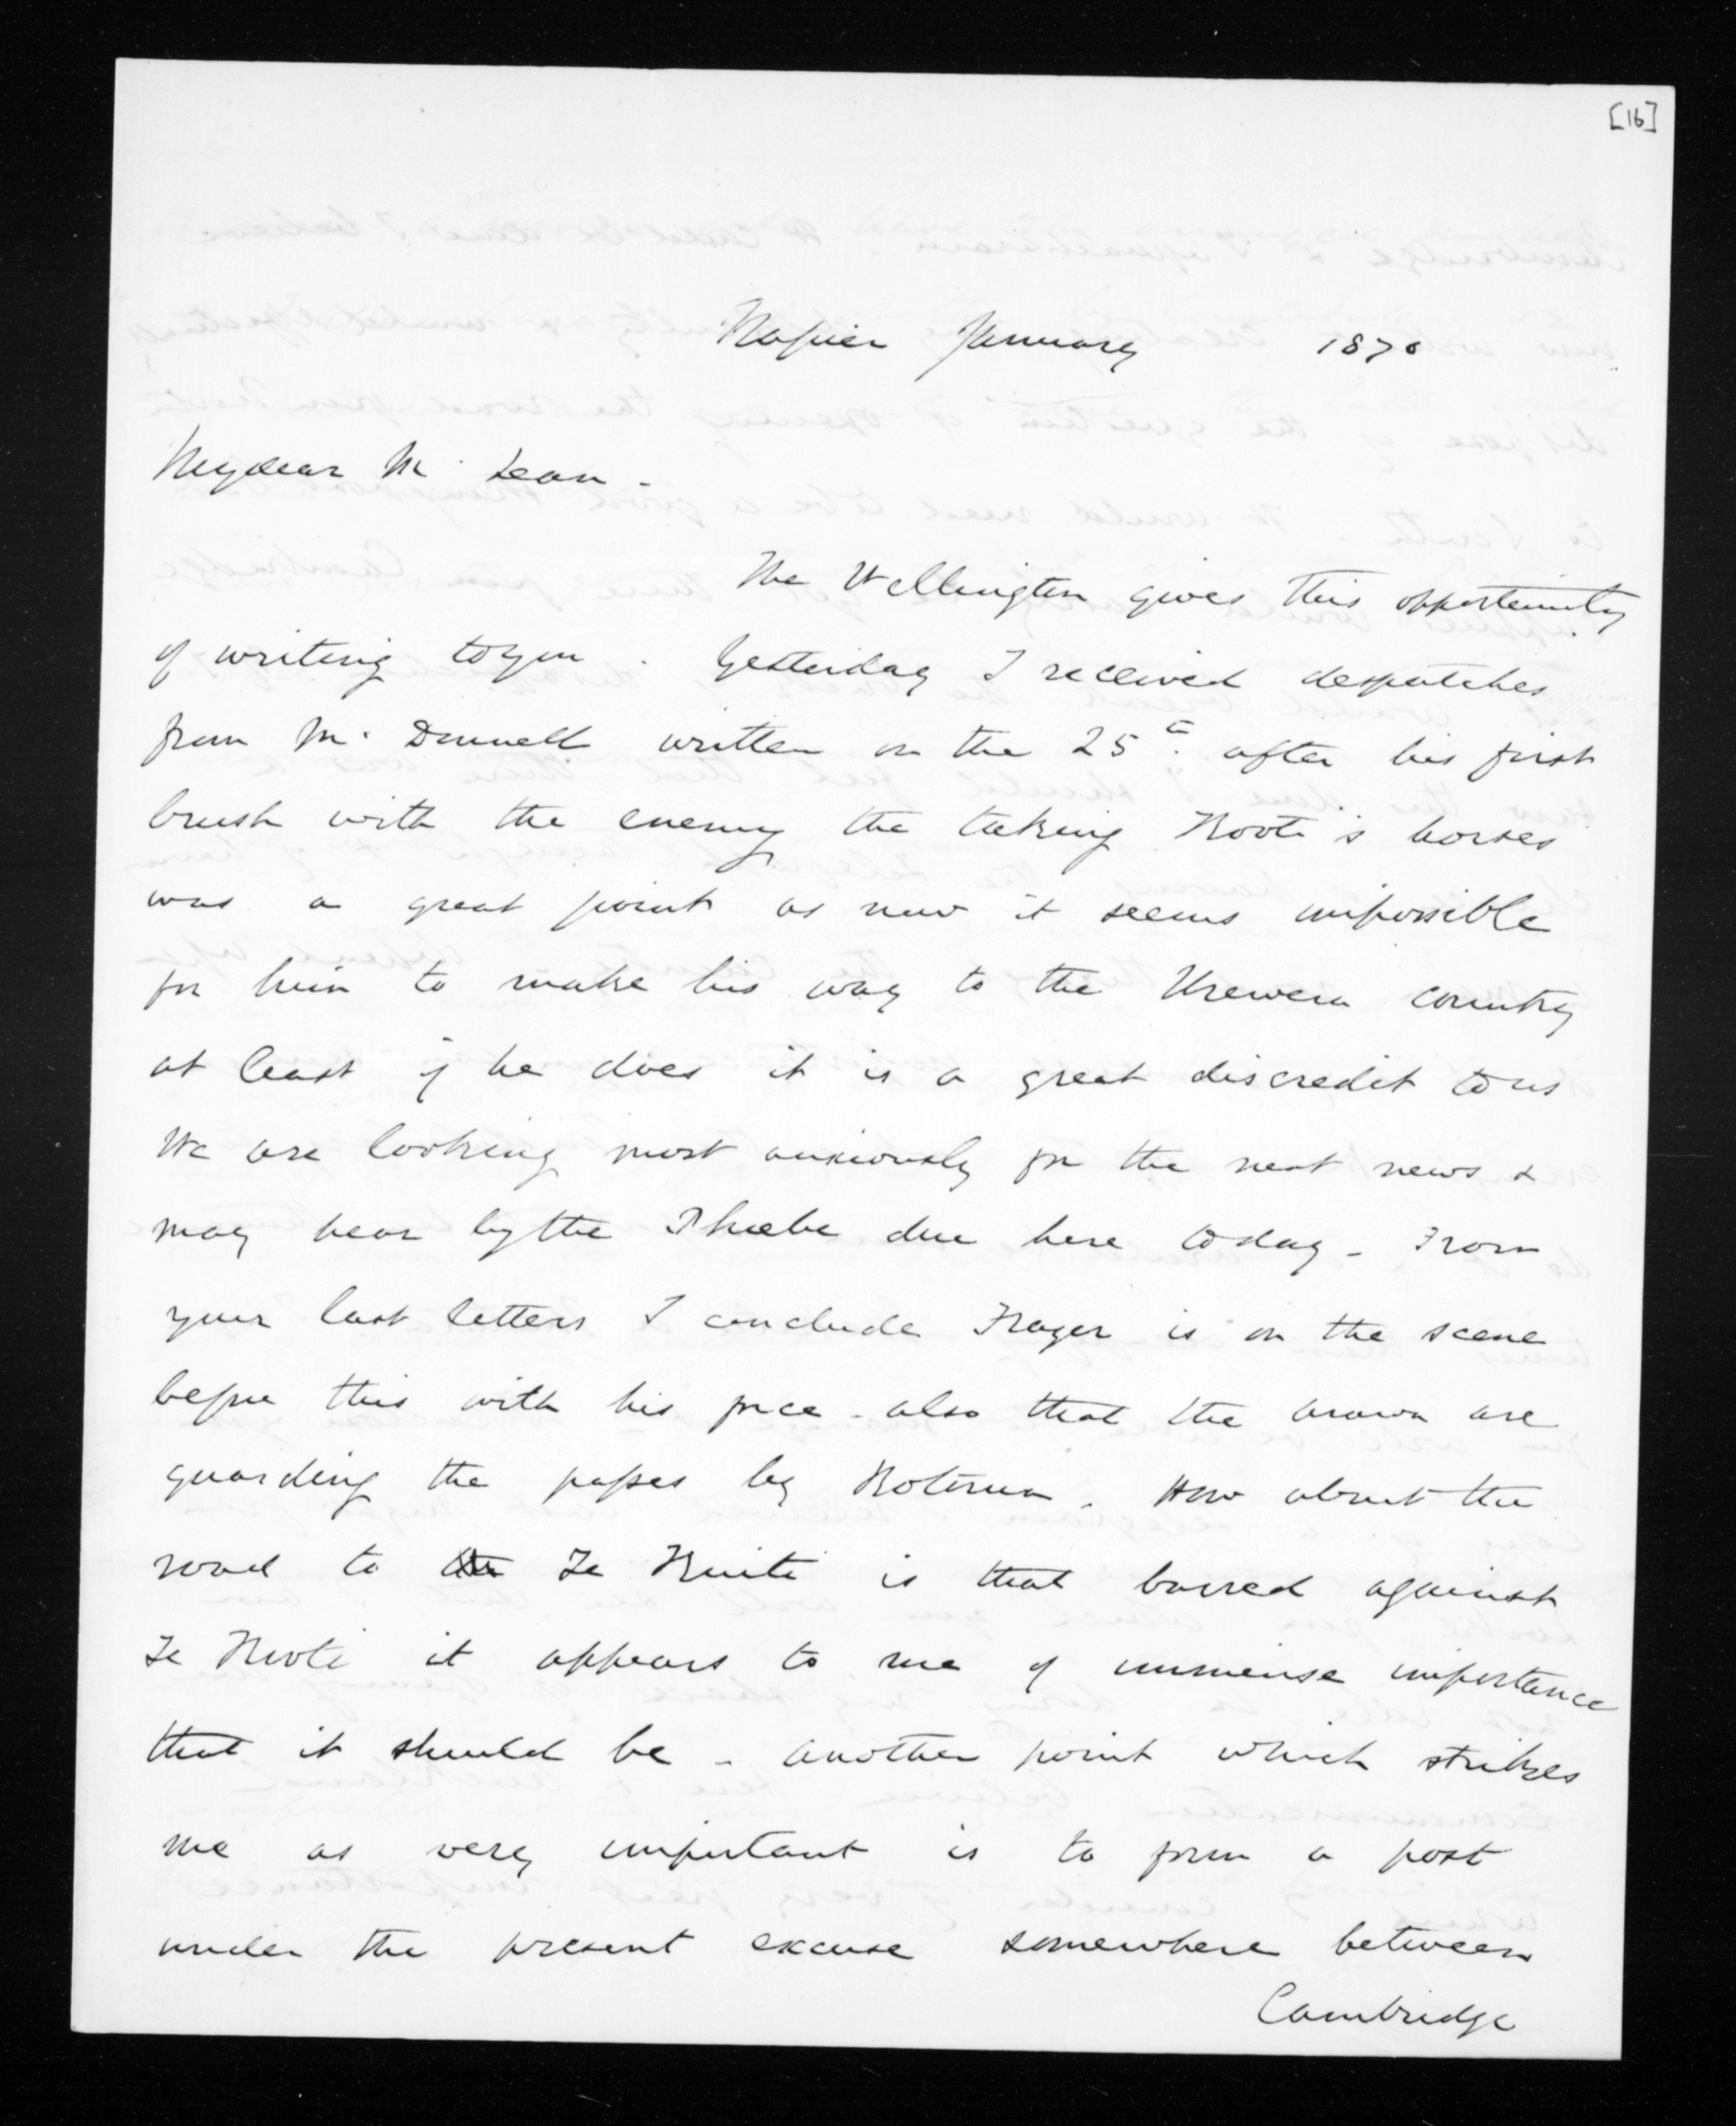 [16]
Napier January 1870
My dear Mc Lean -
The Wellington gives this opportunity
of writing to you . Yesterday I received despatches
from Mc Donnell written on the 25th after his first
brush with the enemy the taking Kooti's horses
was a great point as now it seems impossible
for him to make his way to the Urewera country
at least if he does it is a great discredit to us
We are looking most anxiously for the next news &
may hear by the Phoebe due here today - From
your last letters I conclude Frazer is on the scene
before this with his force - also that the arawa are
guarding the passes by Rotorua . How about the
road to the Te Kuiti is that barred against
Te Kooti it appears to me of immense importance
that it should be - another point which strikes
me as very important is to form a post
under the present excuse somewhere between
Cambridge